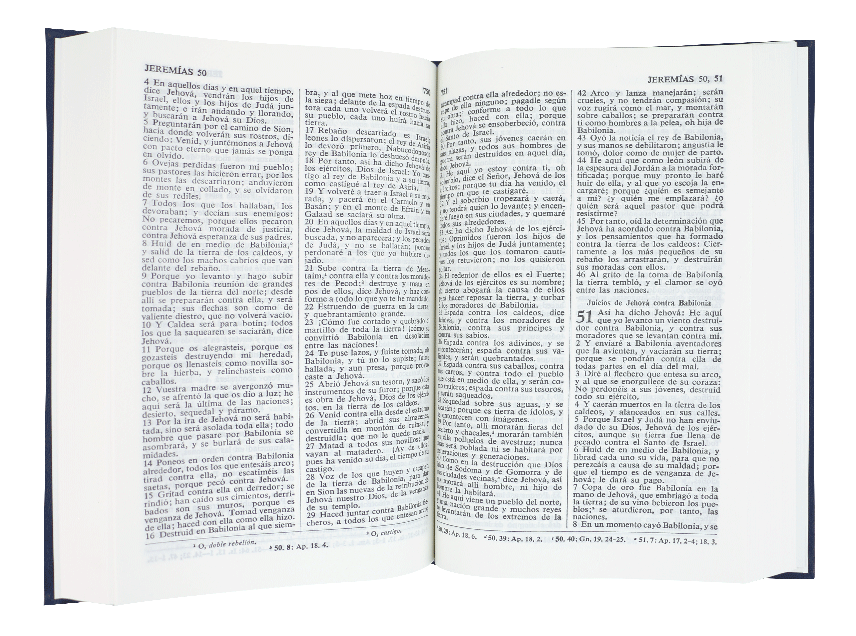 JEREMÍAS 50
4 En aquellos días y en aquel tiempo,
dice Jehová, vendrán los hijos de
Israel, ellos y los hijos de Judá jun-
tamente; e irán andando y llorando,
y buscarán a Jehová su Dios.
5 Preguntarán por el camino de Sion,
hacia donde volverán sus rostros, di-
ciendo: Venid, y juntémonos a Jehová
con pacto eterno que jamás se ponga
en olvido.
6 Ovejas perdidas fueron mi pueblo;
sus pastores las hicieron errar, por los
montes las descarriaron; anduvieron
de monte en collado, y se olvidaron
de sus rediles.
7 Todos los que los hallaban, los
devoraban; y decían sus enemigos:
No pecaremos, porque ellos pecaron
contra Jehová morada de justicia,
contra Jehová esperanza de sus padres.
8 Huid de en medio de Babilonia,
y salid de la tierra de los caldeos, y
sed como los machos cabríos que van
delante del rebaño.
9 Porque yo levanto y hago subir
contra Babilonia reunión de grandes
pueblos de la tierra del norte; desde
allí se prepararán contra ella, y será
tomada; sus flechas son como de
valiente diestro, que no volverá vacío.
10 Y Caldea será para botín; todos
los que la saquearen se saciarán, dice
Jehová.
11 Porque os alegrasteis, porque os
gozasteis destruyendo mi heredad,
porque os llenasteis como novilla so-
bre la hierba, y relinchasteis como
caballos.
12 Vuestra madre se avergonzó mu-
cho, se afrentó la que os dio a luz; he
aquí será la última de las naciones;
desierto, sequedal y páramo.
13 Por la ira de Jehová no será habi-
tada, sino será asolada toda ella; todo
hombre que pasare por Babilonia se
asombrará, y se burlará de sus cala-
midades.
14 Poneos en orden contra Babilonia
alrededor, todos los que entesáis arco;
tirad contra ella, no escatiméis las
saetas, porque pecó contra Jehová.
15 Gritad contra ella en derredor; se
rindió; han caído sus cimientos, derri-
bados son sus muros, porque es
venganza de Jehová. Tomad venganza
de ella; haced con ella como ella hizo.
16 Destruid en Babilonia al que siem-
bra, y al que mete hoz en tiempo de
la siega; delante de la espada
cada uno volverá el rostro hacia
su pueblo, cada uno huirá hacia su
tierra.
17 Rebaño descarriado es Israel;
leones lo dispersaron; el rey de Asiria
lo devoró primero, Nabucodonosor
rey de Babilonia lo deshuesó después.
18 Por tanto, así ha dicho Jehová de
los ejércitos, Dios de Israel: Yo cas-
tigo al rey de Babilonia y a su tierra,
como castigué al rey de Asiria.
19 Y volveré a traer a Israel a su mo-
rada, y pacerá en el Carmelo y en
Basán; y en el monte de Efraín y en
Galaad se saciará su alma.
20 En aquellos días y en aquel tiempo,
dice Jehová, la maldad de Israel será
buscada, y no aparecerá; y los pecados
de Judá, y no se hallarán; porque
perdonaré a los que yo hubiere de-
jado.
21 Sube contra la tierra de Mera-
taim, contra ella y contra los morado-
res de Pecod; destruye y mata en
pos de ellos, dice Jehová, y haz con-
forme a todo lo que yo te he mandado.
22 Estruendo de guerra en la tierra,
y quebrantamiento grande.
23 ¡Cómo fue cortado y quebrado el
martillo de toda la tierra! ¡cómo se
convirtió Babilonia en desolación
entre las naciones!
24 Te puse lazos, y fuiste tomada, oh
Babilonia, y tú no lo supiste; fuiste
hallada, y aun presa, porque provo-
caste a Jehová.
25 Abrió Jehová su tesoro, y sacó los
instrumentos de su furor; porque esta
es obra de Jehová, Dios de los ejérci-
tos, en la tierra de los caldeos.
26 Venid contra ella desde el extremo
de la tierra; abrid sus almacenes,
convertidla en montón de ruinas, y
destruidla; que no le quede nada.
27 Matad a todos sus novillos; que
vayan al matadero. ¡Ay de ellos!
pues ha venido su día, el tiempo de su
castigo.
28 Voz de los que huyen y escapan
de la tierra de Babilonia, para dar
en Sion las nuevas de la retribución de
Jehová nuestro Dios, de la venganza
de su templo.
29 Haced juntar contra Babilonia fle-
cheros, a todos los que entesan arco;
¹ O, doble rebelión.
² O, castigo.
ª 50. 8: Ap. 18. 4.
JEREMÍAS 50, 51
contra ella alrededor; no es-
de ella ninguno; pagadle según
conforme a todo lo que
hizo, haced con ella; porque
contra Jehová se ensoberbeció, contra
Santo de Israel.
Por tanto, sus jóvenes caerán en
y todos sus hombres de
serán destruidos en aquel día,
Jehová.
He aquí yo estoy contra ti, oh
dice el Señor, Jehová de los
porque tu día ha venido, el
en que te castigaré.
Y el soberbio tropezará y caerá,
no tendrá quien lo levante; y encen-
fuego en sus ciudades, y quemaré
todos sus alrededores.
Así ha dicho Jehová de los ejérci-
Oprimidos fueron los hijos de
y los hijos de Judá juntamente;
todos los que los tomaron cauti-
los retuvieron; no los quisieron
El redentor de ellos es el Fuerte;
Jehová de los ejércitos es su nombre;
abogará la causa de ellos
hacer reposar la tierra, y turbar
los moradores de Babilonia.
Espada contra los caldeos, dice
y contra los moradores de
Babilonia, contra sus príncipes y
contra sus sabios.
Espada contra los adivinos, y se
espada contra sus va-
y serán quebrantados.
Espada contra sus caballos, contra
sus carros, y contra todo el pueblo
que está en medio de ella, y serán co-
mujeres; espada contra sus tesoros,
serán saqueados.
Sequedad sobre sus aguas, y se
porque es tierra de ídolos, y
con imágenes.
Por tanto, allí morarán fieras del
y chacales, morarán también
polluelos de avestruz; nunca
será poblada ni se habitará por
generaciones y generaciones.
en la destrucción que Dios
de Sodoma y de Gomorra y de
ciudades vecinas, dice Jehová, así
morará allí hombre, ni hijo de
la habitará.
He aquí viene un pueblo del norte,
nación grande y muchos reyes
levantarán de los extremos de la
42 Arco y lanza manejarán; serán
crueles, y no tendrán compasión; su
voz rugirá como el mar, y montarán
sobre caballos; se prepararán contra
ti como hombres a la pelea, oh hija de
Babilonia.
43 Oyó la noticia el rey de Babilonia,
y sus manos se debilitaron; angustia le
tomó, dolor como de mujer de parto.
44 He aquí que como león subirá de
la espesura del Jordán a la morada for-
tificada; porque muy pronto le haré
huir de ella, y al que yo escoja la en-
cargaré; porque ¿quién es semejante
a mí? ¿y quién me emplazará? ¿o
quién será aquel pastor que podrá
resistirme?
45 Por tanto, oíd la determinación que
Jehová ha acordado contra Babilonia,
y los pensamientos que ha formado
contra la tierra de los caldeos: Cier-
tamente a los más pequeños de su
rebaño los arrastrarán, y destruirán
sus moradas con ellos.
46 Al grito de la toma de Babilonia
la tierra tembló, y el clamor se oyó
entre las naciones.
Juicios de Jehová contra Babilonia
51 Así ha dicho Jehová: He aquí
que yo levanto un viento destrui-
dor contra Babilonia, y contra sus
moradores que se levantan contra mí.
2 Y enviaré a Babilonia aventadores
que la avienten, y vaciarán su tierra;
porque se pondrán contra ella de
todas partes en el día del mal.
3 Diré al flechero que entesa su arco,
y al que se enorgullece de su coraza:
No perdonéis a sus jóvenes, destruid
todo su ejército.
4 Y caerán muertos en la tierra de los
caldeos, y alanceados en sus calles.
5 Porque Israel y Judá no han envin-
dado de su Dios, Jehová de los ejér-
citos, aunque su tierra fue llena de
pecado contra el Santo de Israel.
6 Huid de en medio de Babilonia, y
librad cada uno su vida, para que no
perezcáis a causa de su maldad; por-
que el tiempo es de venganza de Je-
hová; le dará su pago.
7 Copa de oro fue Babilonia en la
mano de Jehová, que embriagó a toda
la tierra; de su vino bebieron los pue-
blos; se aturdieron, por tanto, las
naciones.
8 En un momento cayó Babilonia, y se
Ap. 18. 6. 50. 39: Ap. 18. 2. 50. 40: Gn. 19. 24-25. 51. 7: Ap. 17. 2-4; 18. 3.